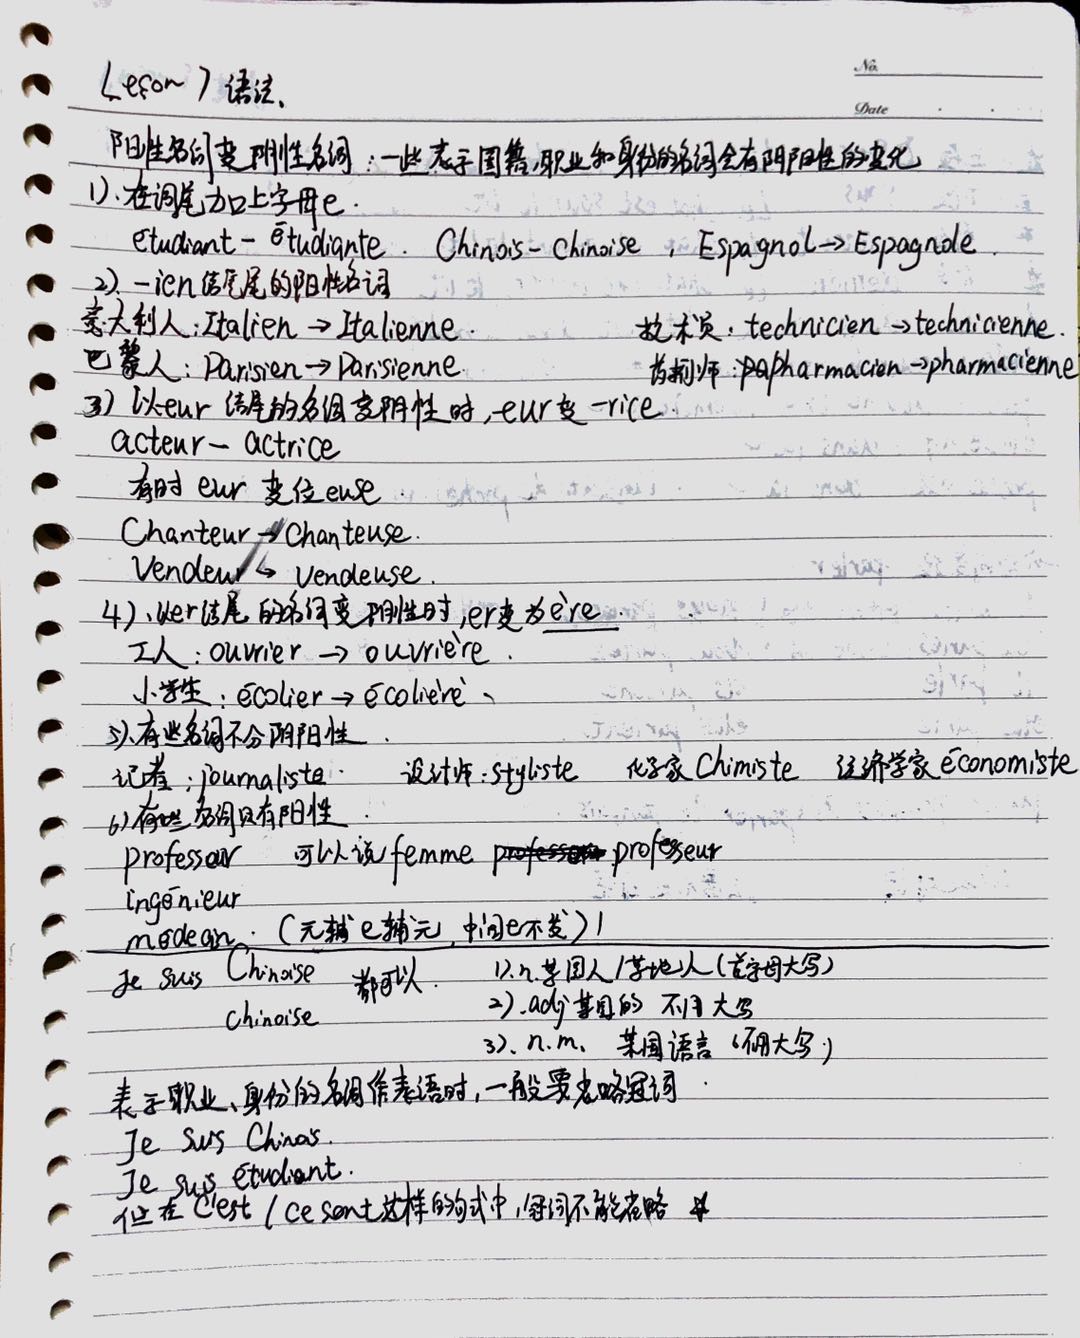 Leçon 7 语法、
No.
Date
阳性名词变阴性名词：一些表示国籍,职业和身份的名词会有阴阳性的变化
1)、在词尾加上字母e.
étudiant - étudiante. Chinois - Chinoise , Espagnol → Espagnole
2). -ien结尾尾的阳性名词
意大利人：Italien → Italienne. 技术员：technicien → technicienne.
巴黎人：Parisien → Parisienne. 药剂师：papharmacien → pharmacienne
3) 以eur结尾的名词变阴性时,-eur变 -rice
acteur - actrice
有时 eur 变位 euse
Chanteur → Chanteuse.
Vendeur → Vendeuse.
4)、er结尾的名词变阴性时,er变为ère.
工人：ouvrier → ouvrière.
小学生：écolier → écolière、
5).有些名词不分阴阳性.
记者：journaliste. 设计师：styliste 化学家 Chimiste 经济学家 économiste
6)有些名词只有阳性.
professeur 可以说 femme professeur professeur
ingénieur
médecin. (元辅e辅元,中间e不发)！
Je suis Chinoise 都可以. 1).n.某国人/某地人(首字母大写)
chinoise 2).adj某国的 不用大写
3)、n.m、某国语言(不用大写.)
表示职业、身份的名词作表语时,一般要省略冠词.
Je suis Chinois.
Je suis étudiant.
但在C'est / ce sont这样的句式中,冠词不能省略